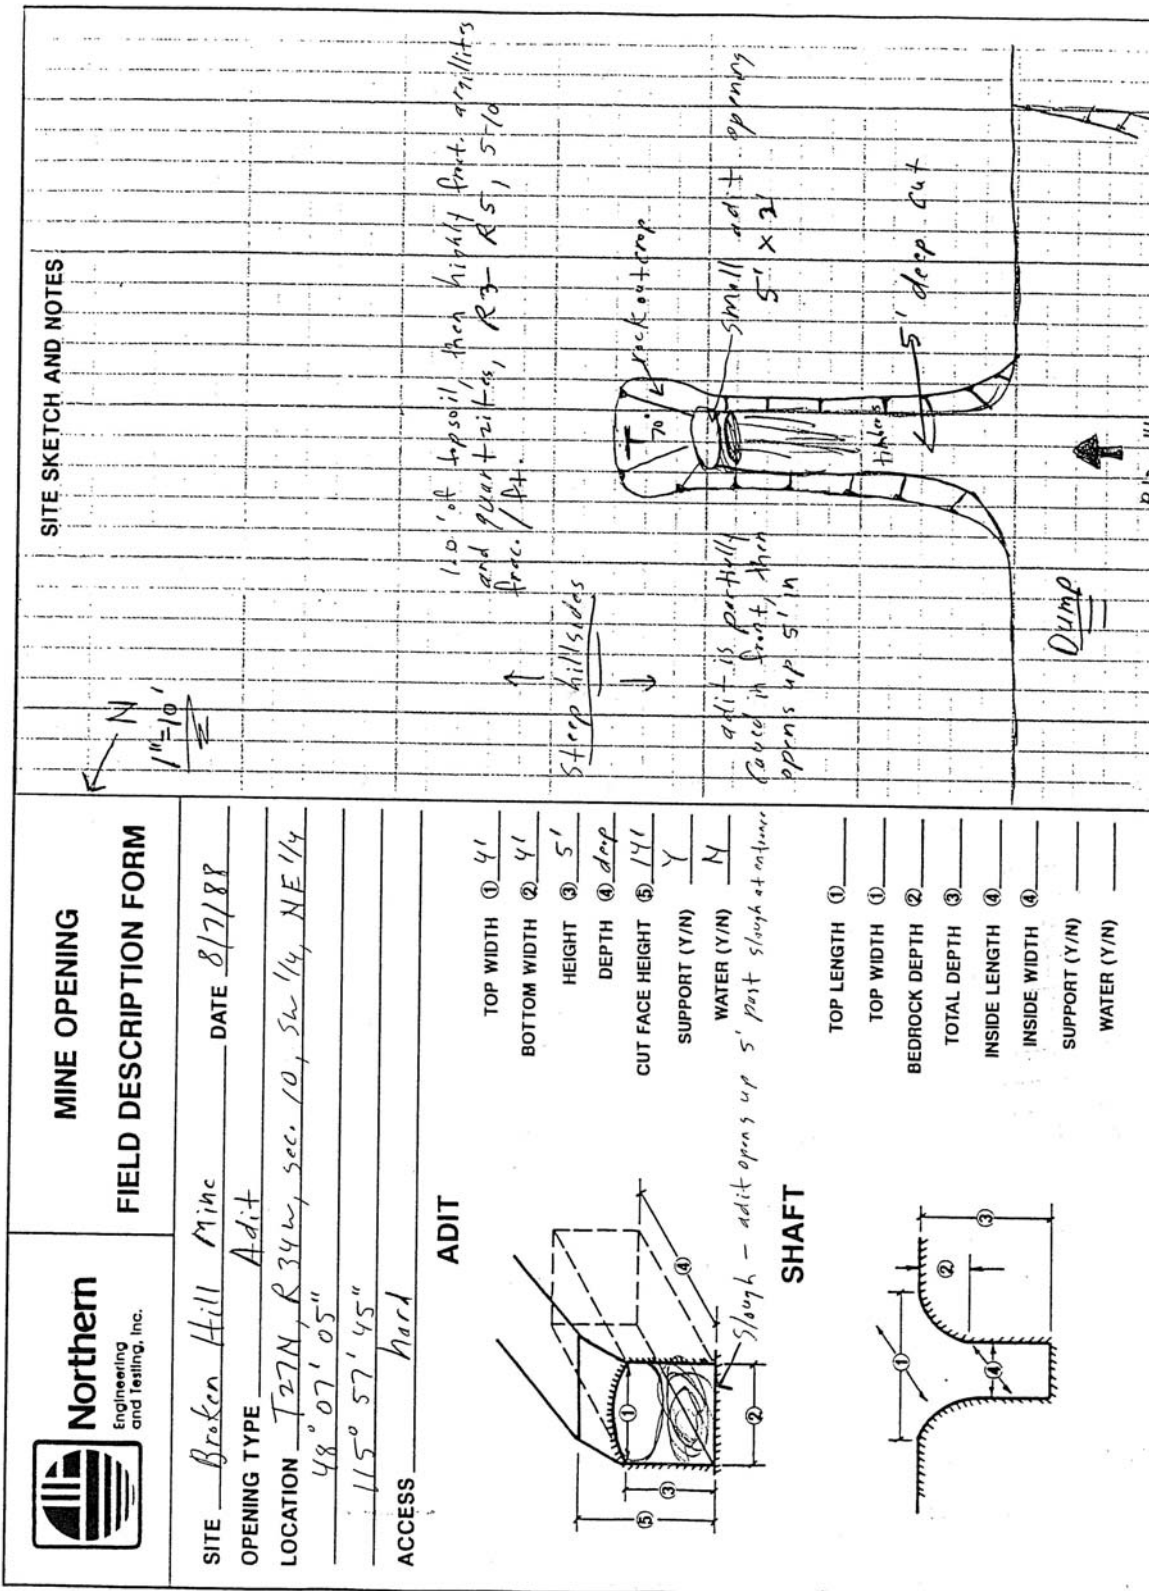 Northern
Engineering
and Testing, Inc.
MINE OPENING
FIELD DESCRIPTION FORM
SITE Broken Hill Mine DATE 8/7/88
OPENING TYPE Adit
LOCATION T27N, R34W, sec. 10, SW 1/4, NE 1/4
48° 07' 05"
115° 57' 45"
ACCESS hard
ADIT
TOP WIDTH ① 4'
BOTTOM WIDTH ② 4'
HEIGHT ③ 5'
DEPTH ④ deep
CUT FACE HEIGHT ⑤ 14'
SUPPORT (Y/N) Y
WATER (Y/N) N
① ② ③ ④ ⑤
Slough - adit opens up 5' past slough at entrance
SHAFT
TOP LENGTH ①
TOP WIDTH ①
BEDROCK DEPTH ②
TOTAL DEPTH ③
INSIDE LENGTH ④
INSIDE WIDTH ④
SUPPORT (Y/N)
WATER (Y/N)
① ② ③ ④
SITE SKETCH AND NOTES
N
1"=10'
1.0' of topsoil, then highly fract. argillites
and quartzites, R3-R5, 5-10
frac./ft.
Steep hillsides
70°
rock outcrop
small adit opening
5' x 2'
adit is partially
caved in front, then
opens up 5' in
timbers
5' deep cut
Dump